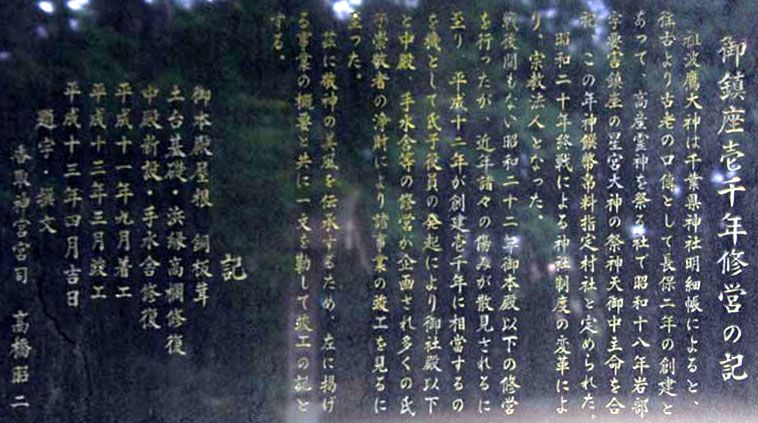 御鎮座壱千年修営の記
祖波鷹大神は千葉県神社明細帳によると、
往古より古老の口傳として長保二年の創建と
あって、高産霊神を祭る社で昭和十八年岩部
字曼吉鎮座の星宮大神の祭神天御中主命を合
祀、この年神饌幣帛料指定村社と定められた。
昭和二十年終戦による神社制度の変革によ
り、宗教法人となった。
戦後間もない昭和二十二年御本殿以下の修営
を行ったが、近年諸々の傷みが散見されるに
至り、平成十二年が創建壱千年に相當するの
を機として氏子役員の発起により御社殿以下
と中殿、手水舎等の修営が企画され多くの氏
子崇敬者の浄財により諸事業の竣工を見るに
至った。
茲に敬神の美風を伝承するため、左に掲げ
る事業の概要と共に一文を勒して竣工の記と
する。
記
御本殿屋根 銅板葺
土台基礎・浜縁高欄修復
中殿新設・手水舎修復
平成十一年九月着工
平成十三年三月竣工
平成十三年四月吉日
題字・撰文
香取神宮宮司 高橋昭二